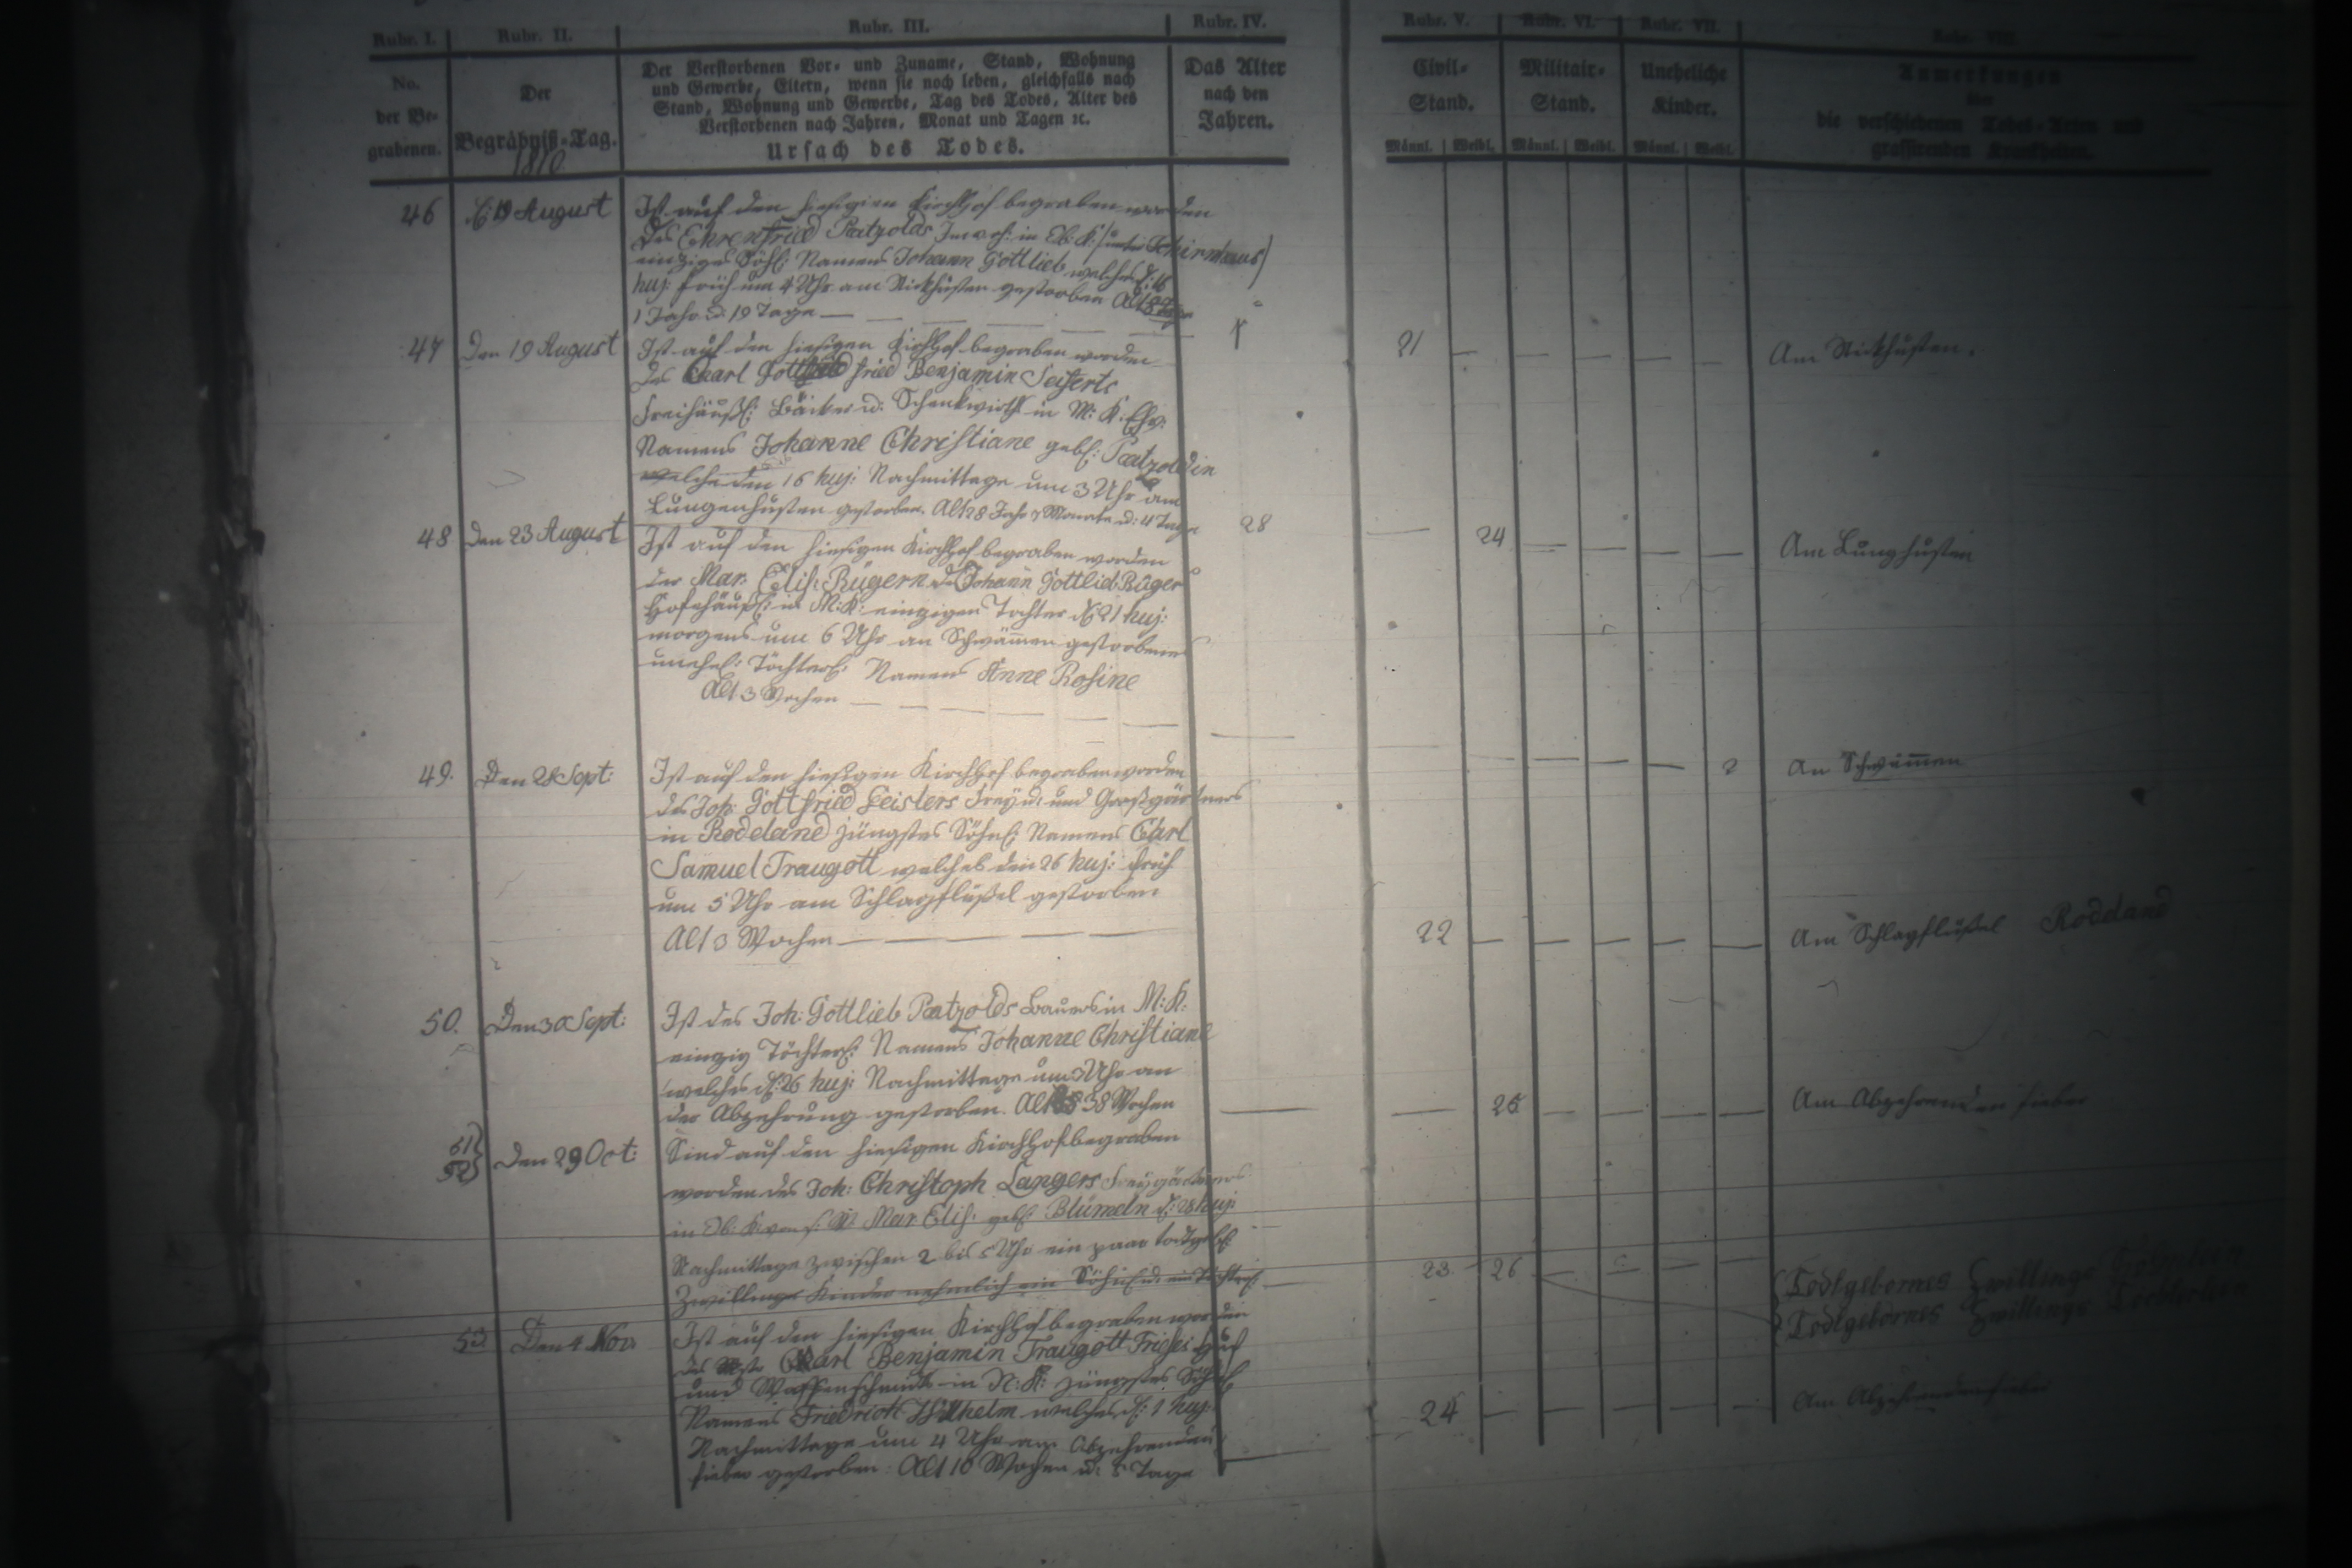 Rubr. I. Rubr. II. Rubr. III. Rubr. IV. Rubr. V. Rubr. VI. Rubr. VII. Rubr. VIII.
No.
der Be-
grabenen.
Der
Begräbniß-Tag.
1810.
Der Verstorbenen Vor- und Zuname, Stand, Wohnung
und Gewerbe, Eltern, wenn sie noch leben, gleichfalls nach
Stand, Wohnung und Gewerbe, Tag des Todes, Alter des
Verstorbenen nach Jahren, Monat und Tagen ꝛc.
Ursach des Todes.
Das Alter
nach den
Jahren.
Civil-
Stand.
Militair-
Stand.
Uneheliche
Kinder.
Männl. Weibl. Männl. Weibl. Männl. Weibl.
Anmerkungen
über
die verschiedenen Todes-Arten und
grassirenden Krankheiten.
46 d: 19 August
Ist auf den hiesigen Kirchhof begraben worden
des Ehrenfried Patzolds Inwoh: in Ob: K: Schirmhaus)
einziges Söhl: Namens Johann Gottlieb welches d: 16
huj: früh um 4 Uhr am Stickhusten gestorben Alt
1 Jahr u: 19 Tage
1 21 Am Stickhusten.
47 Den 19 August
Ist auf den hiesigen Kirchhof begraben worden
des Carl Gottfried Benjamin Seiferts
Freihäusl: Bäcker u: Schenkwirth in M: K. Ehw:
Namens Johanne Christiane geb: Patzoldin
welche den 16 huj: Nachmittage um 3 Uhr am
Lungenhusten gestorben. Alt 28 Jahr 7 Monate u: 4 Tage
28 24 Am Lunghusten
48 Den 23 August
Ist auf den hiesigen Kirchhof begraben worden
der Mar: Elis: Rügern des Johann Gottlieb Rüger
Hofehäusl: in M: K: einzigen Tochter d: 21 huj:
morgens um 6 Uhr an Schwämmen gestorbene
unehel: Töchterl: Namens Anne Rosine
Alt 3 Wochen
2 An Schwämmen
49. Den 28 Sept:
Ist auf den hiesigen Kirchhof begraben worden
des Joh: Gottfried Feislers Frey: und Großgärtners
in Rodeland jüngstes Söhnl: Namens Carl
Samuel Traugott welches den 26 huj: früh
um 5 Uhr am Schlagflüßel gestorben
Alt 3 Wochen
22 Am Schlagflüßel Rodeland
50. Den 30 Sept:
Ist des Joh: Gottlieb Patzolds Bauers in M: K:
einzig Töchterl: Namens Johanne Christiane
welches d: 26 huj: Nachmittage um 3 Uhr an
der Abzehrung gestorben. Alt 38 Wochen
25 Am Abzehrenden fieber
51
52 Den 29 Oct:
Sind auf den hiesigen Kirchhof begraben
worden des Joh: Christoph Langers Freygärtners
in Ob: K. von s: W: Mar. Elis: geb: Blümeln d: 28 huj:
Nachmittage zwischen 2 bis 5 Uhr ein paar todtgeb:
Zwillings Kinder nehmlich ein Söhnl: u: ein Töchterl:
23. 26 Todtgebornes Zwillings Söhnchen
Todtgebornes Zwillings Töchterchen
53 Den 4 Nov:
Ist auf den hiesigen Kirchhof begraben worden
des Carl Benjamin Traugott Frieses Huf
und Waffenschmidt in N: K: jüngstes Söhnl:
Namens Friedrich Wilhelm welches d: 1 huj:
Nachmittage um 4 Uhr am Abzehrenden
fieber gestorben: Alt 10 Wochen u: 5 Tage
24 Am Abzehrenden fieber